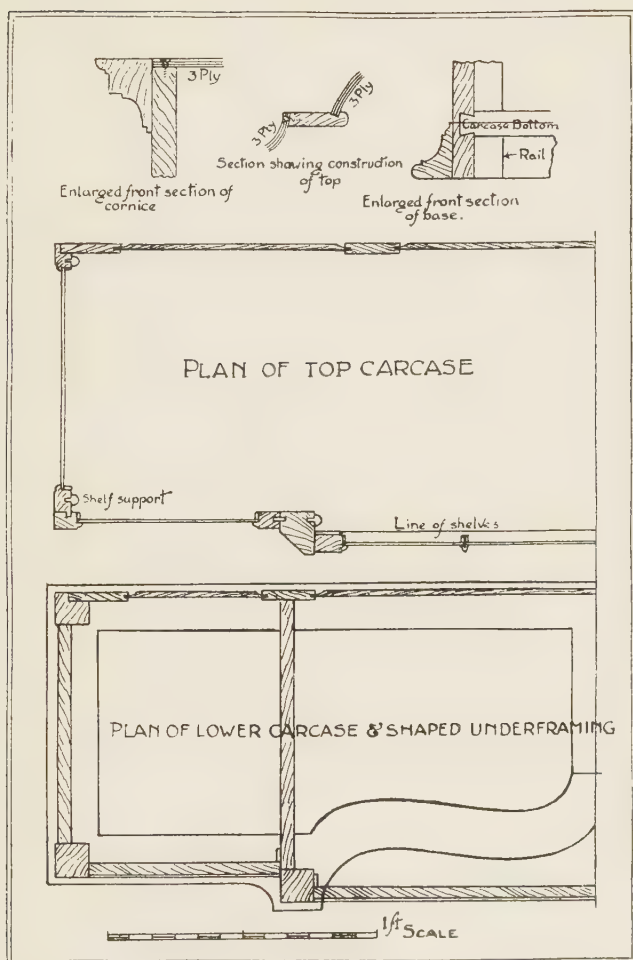 3 Ply
Enlarged front section of
cornice
3 Ply
3 Ply
Section showing construction
of top
Carcase Bottom
Rail
Enlarged front section
of base.
PLAN OF TOP CARCASE
Shelf support
Line of shelves
PLAN OF LOWER CARCASE & SHAPED UNDERFRAMING
1 ft SCALE